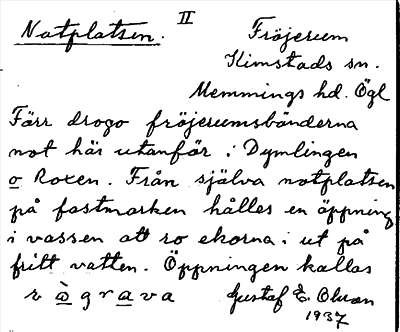 Notplatsen. II Fröjerum
Kimstads sn.
Memmings hd. Ögl
Förr drogo fröjerumsbönderna
not här utanför i Dymlingen
o Roxen. Från själva notplatsen
på fastmarken hålles en öppning
i vassen att ro ekorna i ut på
fritt vatten. Öppningen kallas
ràgrava Gustaf E. Olsson
1937